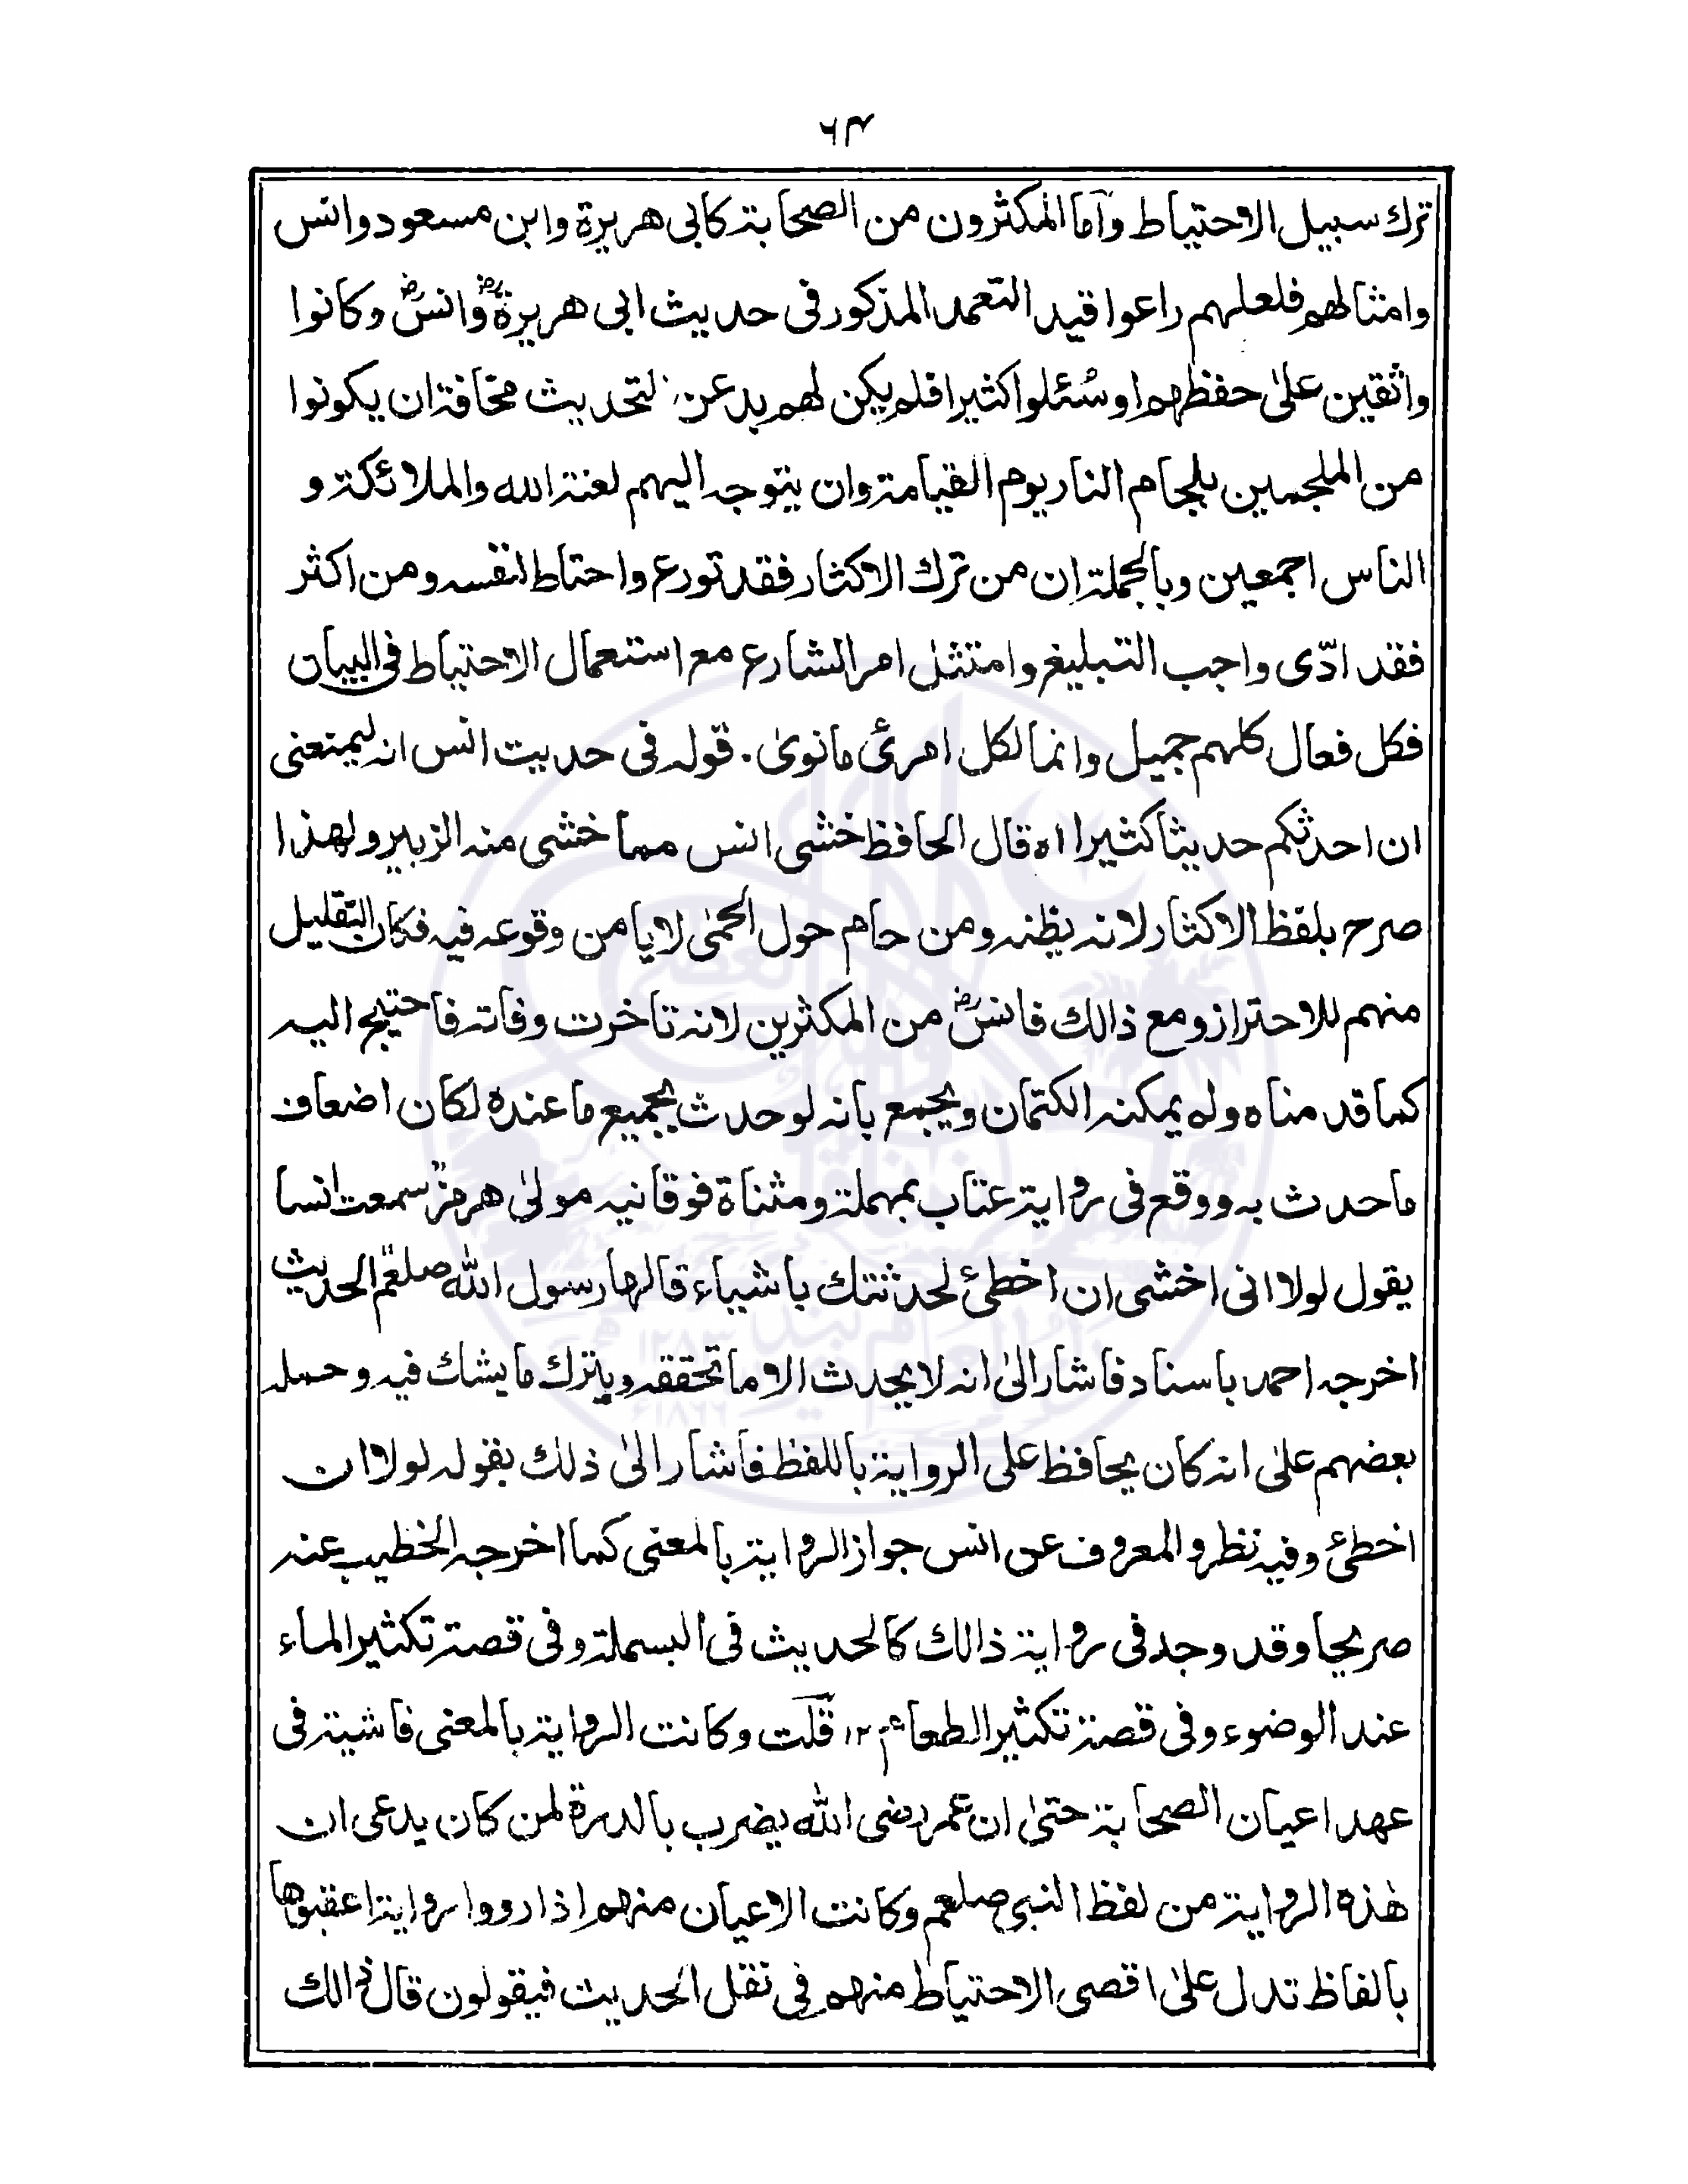 ٦٣
ترك سبيل الاحتياط وأما المكثرون من الصحابة كابى هريرة وابن مسعود وانس
وامثالهم فلعلهم راعوا قيد التعمد المذكور فى حديث ابى هريرةؓ وانسؓ وكانوا
واثقين على حفظهم او سُئلوا كثيرا فلم يكن لهم بد عن التحديث مخافة ان يكونوا
من الملجمين بلجام النار يوم القيامة وان يتوجه اليهم لعنة الله والملائكة و
الناس اجمعين وبالجملة ان من ترك الاكثار فقد تورع واحتاط لنفسه ومن اكثر
فقد ادّى واجب التبليغ وامتثل امر الشارع مع استعمال الاحتياط فى البيان
فكل فعال كلهم جميل وانما لكل امرئ مانوىٰ. قوله فى حديث انس انه ليمنعنى
ان احدثكم حديثا كثيرا اه قال الحافظ خشى انس مما خشى منه الزبير ولهذا
صرح بلفظ الاكثار لانه يظنه ومن حام حول الحمىٰ لا يامن وقوعه فيه فكان التقليل
منهم للاحتراز ومع ذالك فانسؓ من المكثرين لانه تاخرت وفاته فاحتيج اليه
كما قدمناه ولم يمكنه الكتمان ويجمع بانه لو حدث بجميع ما عنده لكان اضعاف
ماحدث به ووقع فى رواية عتاب بمهملة ومثناة فوقانيه مولىٰ هرمز سمعت انسا
يقول لولا انى اخشى ان اخطئ لحدثتك باشياء قالها رسول الله صلعم الحديث
اخرجه احمد باسناد فاشار الىٰ انه لا يحدث الا ما تحققه ويترك ما يشك فيه وحمله
بعضهم علىٰ انه كان يحافظ على الرواية باللفظ فاشار الىٰ ذلك بقوله لولا ان
اخطئ وفيه نظر والمعروف عن انس جواز الرواية بالمعنى كما اخرجه الخطيب عنه
صريحا وقد وجد فى رواية ذالك كالحديث فى البسملة وفى قصة تكثير الماء
عند الوضوء وفى قصة تكثير الطعام ١٢ قلت وكانت الرواية بالمعنى فاشية فى
عهد اعيان الصحابة حتىٰ ان عمر رضى الله يضرب بالدرة لمن كان يدعى ان
هٰذه الرواية من لفظ النبى صلعم وكانت الاعيان منهم اذا رووا رواية اعقبوها
بالفاظ تدل علىٰ اقصى الاحتياط منهم فى نقل الحديث فيقولون قال ذالك